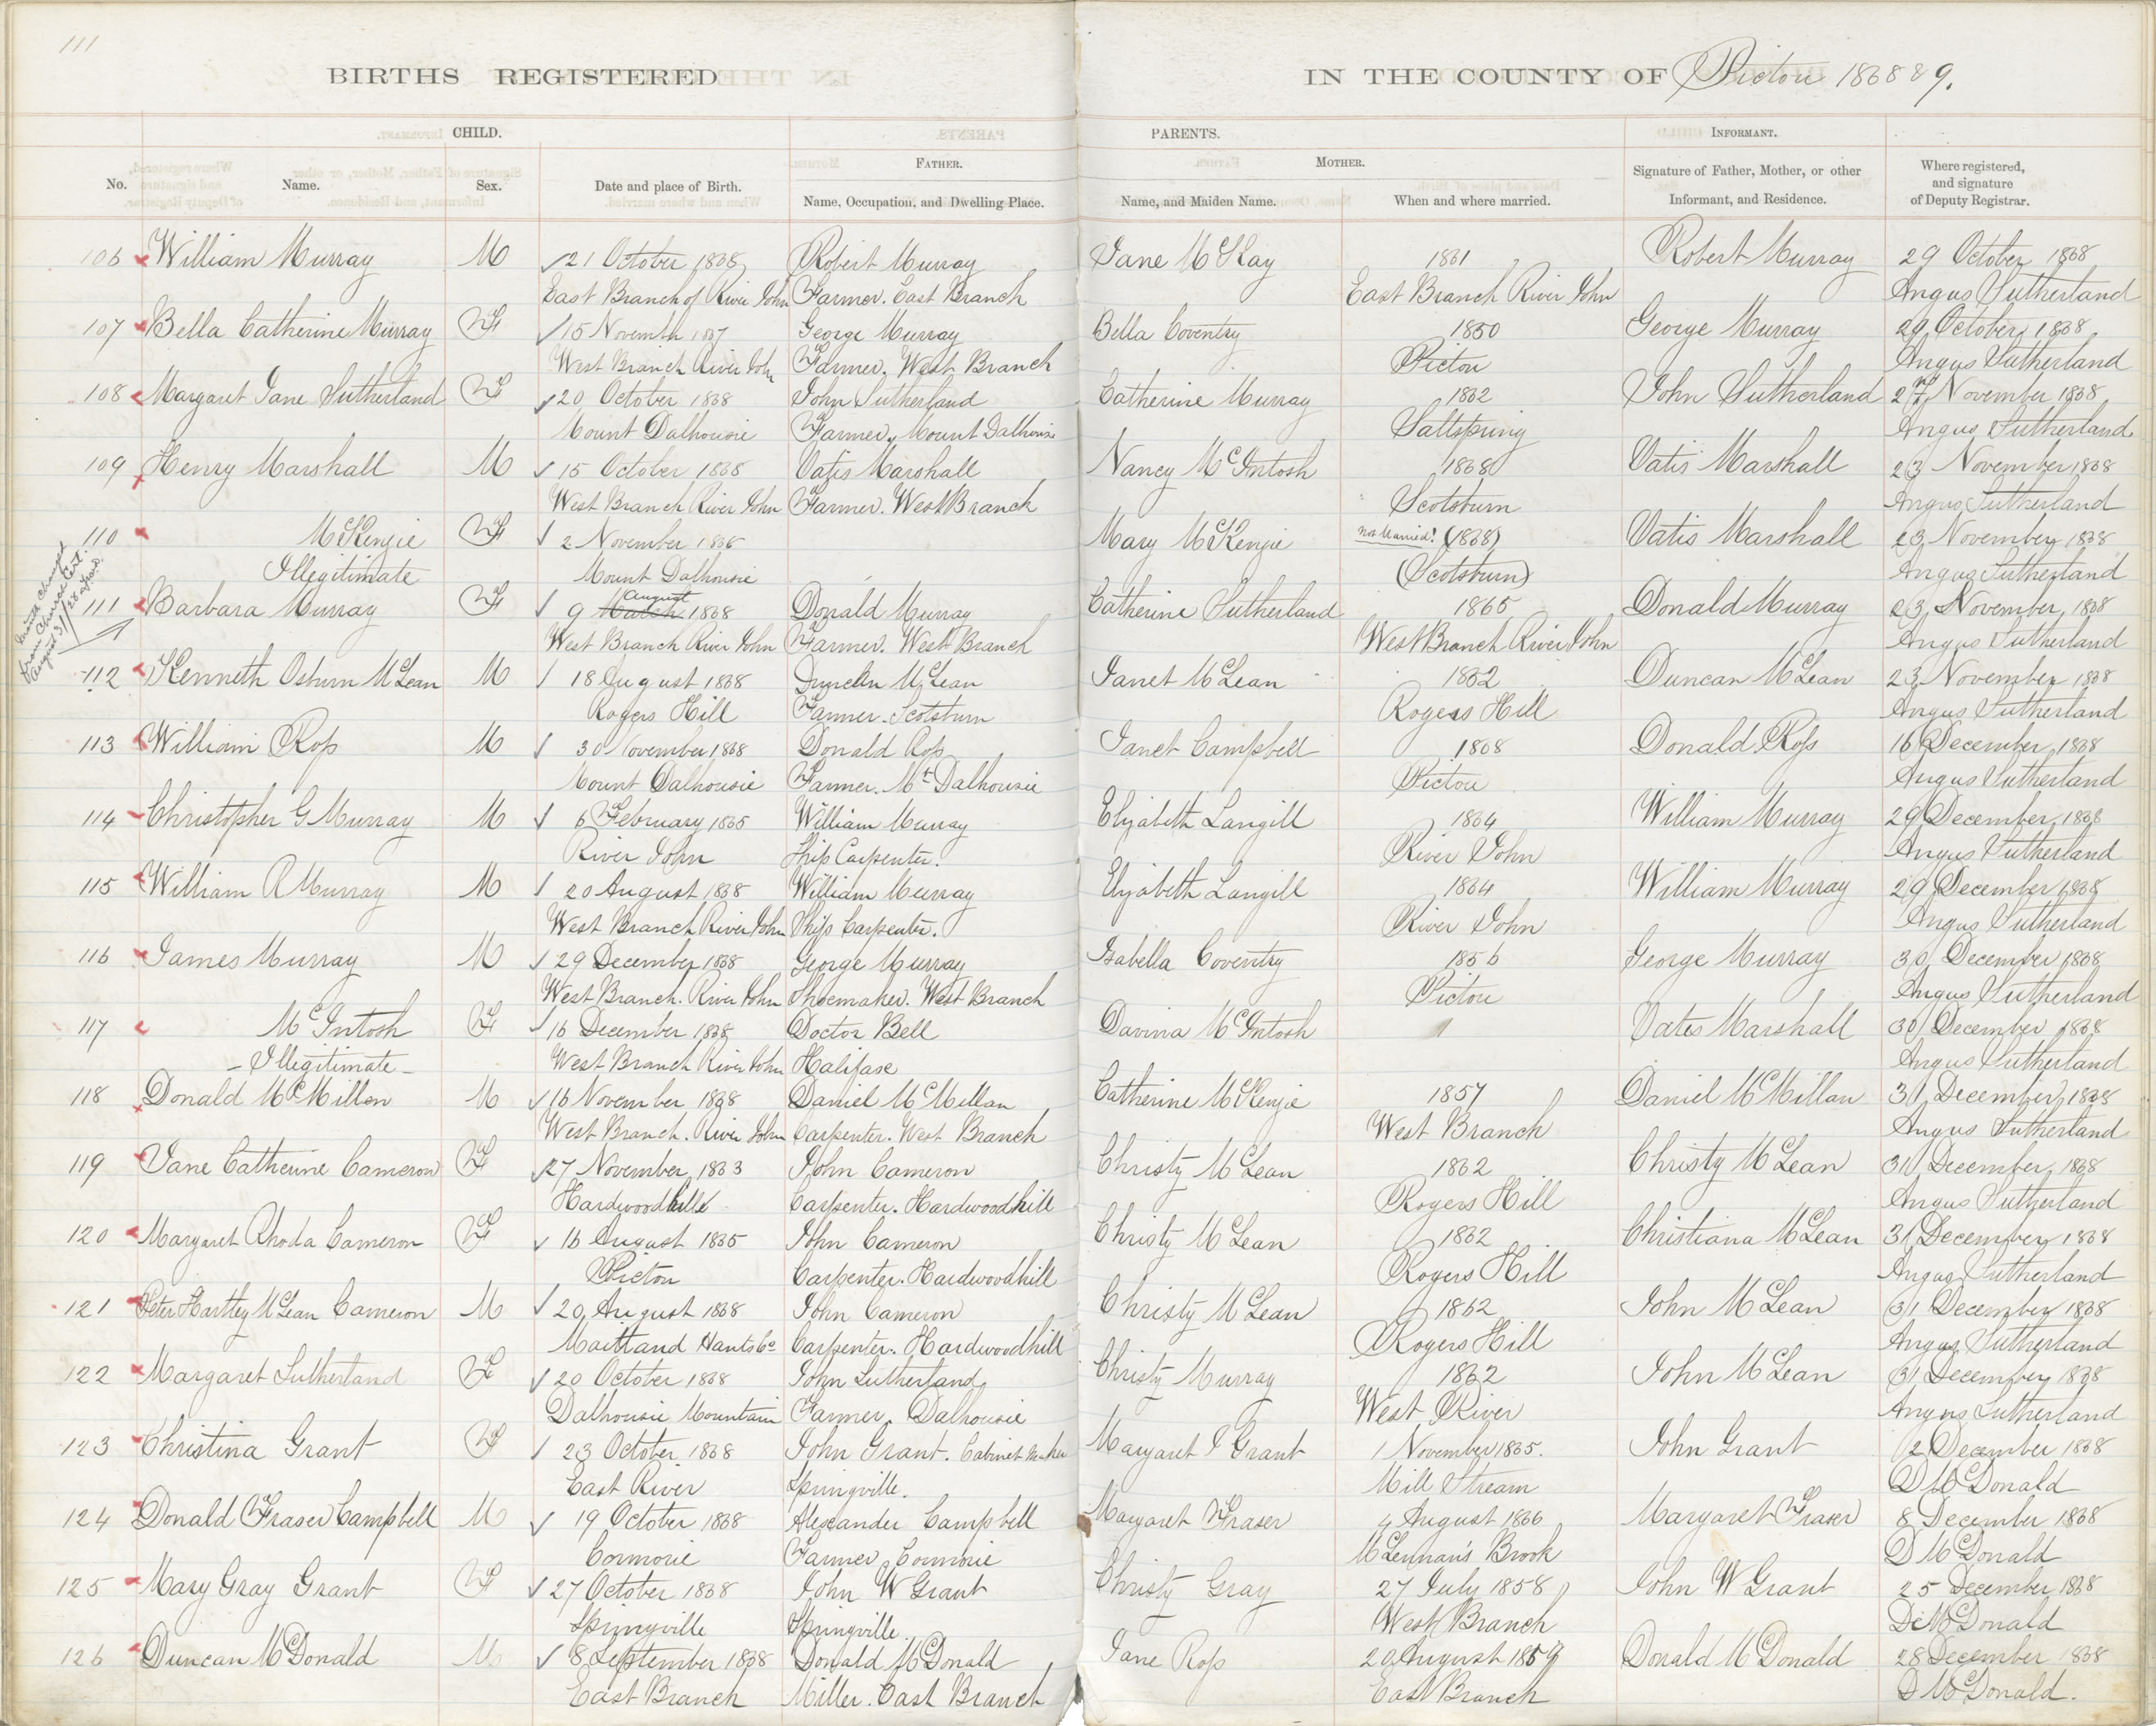 111
BIRTHS REGISTERED IN THE COUNTY OF Pictou 1868 & 9.
CHILD. PARENTS. INFORMANT.
FATHER. MOTHER.
No. Name. Sex. Date and place of Birth. Name, Occupation, and Dwelling Place. Name, and Maiden Name. When and where married. Signature of Father, Mother, or other Informant, and Residence. Where registered, and signature of Deputy Registrar.
106 William Murray M 21 October 1868 Robert Murray Jane McKay 1861 Robert Murray 29 October 1868
East Branch of River John Farmer. East Branch East Branch River John Angus Sutherland
107 Bella Catherine Murray F 15 November 1867 George Murray Bella Coventry 1850 George Murray 29 October 1868
West Branch River John Farmer. West Branch Pictou Angus Sutherland
108 Margaret Jane Sutherland F 20 October 1868 John Sutherland Catherine Murray 1862 John Sutherland 2nd November 1868
Mount Dalhousie Farmer. Mount Dalhousie Saltspring Angus Sutherland
109 Henry Marshall M 15 October 1868 Vatis Marshall Nancy McIntosh 1868 Vatis Marshall 23 November 1868
West Branch River John Farmer. West Branch Scotsburn Angus Sutherland
110 McKenzie F 2 November 1868 Mary McKenzie not Married! (1868) Vatis Marshall 23 November 1868
Illegitimate Mount Dalhousie (Scotsburn) Angus Sutherland
month changed
from Church Cert.
August 31/28
111 Barbara Murray F 9 March August 1868 Donald Murray Catherine Sutherland 1865 Donald Murray 23 November 1868
West Branch River John Farmer. West Branch West Branch River John Angus Sutherland
112 Kenneth Osburn McLean M 18 August 1868 Duncan McLean Janet McLean 1862 Duncan McLean 23 November 1868
Rogers Hill Farmer. Scotsburn Rogers Hill Angus Sutherland
113 William Ross M 30 November 1868 Donald Ross Janet Campbell 1868 Donald Ross 16 December 1868
Mount Dalhousie Farmer. Mt Dalhousie Pictou Angus Sutherland
114 Christopher G Murray M 6 February 1865 William Murray Elizabeth Langill 1864 William Murray 29 December 1868
River John Ship Carpenter. River John Angus Sutherland
115 William R Murray M 20 August 1868 William Murray Elizabeth Langill 1864 William Murray 29 December 1868
West Branch River John Ship Carpenter. River John Angus Sutherland
116 James Murray M 29 December 1868 George Murray Isabella Coventry 1856 George Murray 30 December 1868
West Branch. River John Shoemaker. West Branch Pictou Angus Sutherland
117 McIntosh F 16 December 1868 Doctor Bell Davina McIntosh Vates Marshall 30 December 1868
- Illegitimate - West Branch River John Halifax Angus Sutherland
118 Donald McMillan M 16 November 1868 Daniel McMillan Catherine McKenzie 1857 Daniel McMillan 31 December 1868
West Branch. River John Carpenter. West Branch West Branch Angus Sutherland
119 Jane Catherine Cameron F 27 November 1863 John Cameron Christy McLean 1862 Christy McLean 31 December 1868
Hardwoodhill Carpenter. Hardwoodhill Rogers Hill Angus Sutherland
120 Margaret Rhoda Cameron F 16 August 1865 John Cameron Christy McLean 1862 Christiana McLean 31 December 1868
Pictou Carpenter. Hardwoodhill Rogers Hill Angus Sutherland
121 Peter Hartley McLean Cameron M 20 August 1868 John Cameron Christy McLean 1862 John McLean 31 December 1868
Maitland Hants Co Carpenter. Hardwoodhill Rogers Hill Angus Sutherland
122 Margaret Sutherland F 20 October 1868 John Sutherland Christy Murray 1862 John McLean 31 December 1868
Dalhousie Mountain Farmer. Dalhousie West River Angus Sutherland
123 Christina Grant F 23 October 1868 John Grant. Cabinet Maker Margaret Grant 1 November 1865. John Grant 2 December 1868
East River Springville. Mill Stream D McDonald
124 Donald Fraser Campbell M 19 October 1868 Alexander Campbell Margaret Fraser 4 August 1866 Margaret Fraser 8 December 1868
Cormorie Farmer Cormorie McLennan's Brook D McDonald
125 Mary Gray Grant F 27 October 1868 John W Grant Christy Gray 27 July 1858 John W Grant 25 December 1868
Springville Springville. West Branch D McDonald
126 Duncan McDonald M 8 September 1868 Donald McDonald Jane Ross 20 August 1859 Donald McDonald 28 December 1868
East Branch Miller. East Branch East Branch D McDonald.